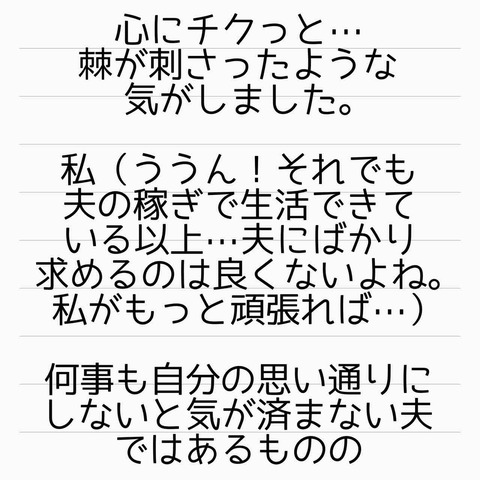 心にチクっと…
棘が刺さったような
気がしました。
私（ううん！それでも
夫の稼ぎで生活できて
いる以上…夫にばかり
求めるのは良くないよね。
私がもっと頑張れば…）
何事も自分の思い通りに
しないと気が済まない夫
ではあるものの